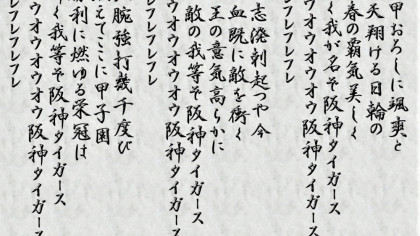 甲おろしに颯爽と
天翔ける日輪の
春の覇気美しく
く我が名ぞ阪神タイガース
ウオウオウオウ阪神タイガース
レフレフレフレ
志溌剌起つや今
血既に敵を衝く
王の意気高らかに
敵の我等ぞ阪神タイガース
ウオウオウオウ阪神タイガース
レフレフレフレ
腕強打幾千度び
えてここに甲子園
利に燃ゆる栄冠は
く我等ぞ阪神タイガース
ウオウオウオウ阪神タイガース
レフレフレフレ